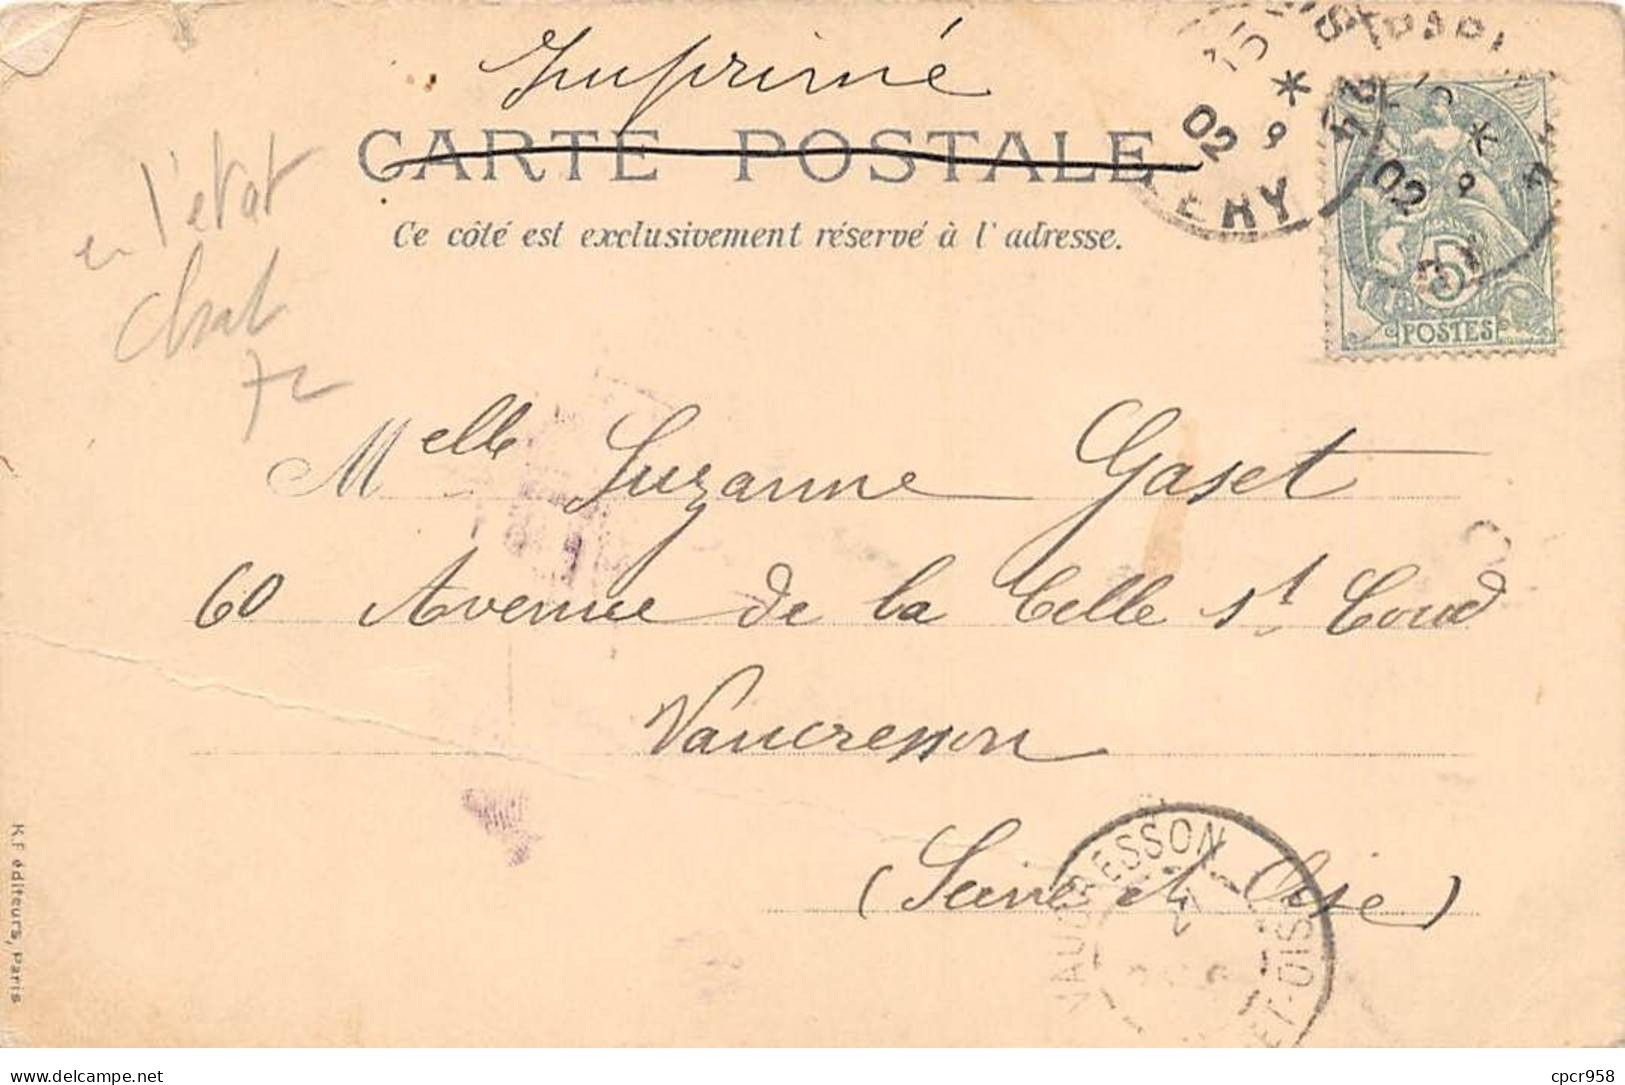 Imprimé
CARTE POSTALE
Ce côté est exclusivement réservé à l'adresse.
en l'état
chat
72
POSTES
5
02
02
ERY
Melle Suzanne Gaset
60 Avenue de la Celle St Coud
Vaucresson
(Seine et Oise)
VAUCRESSON
ET-OISE
K.F. éditeurs, Paris
cpcr958